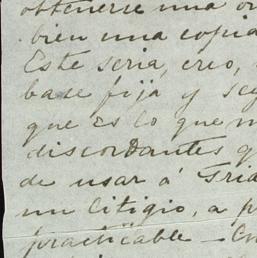 obtenerse una
bien una copia
Este seria, creo,
base fija y
que es lo que
discordantes
de usar á
un litigio, a
practicable —